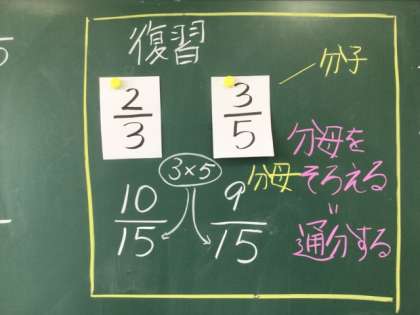 復習
2/3
3/5
分子
3×5
分母
10/15
9/15
分母を
そろえる
〃
通分する